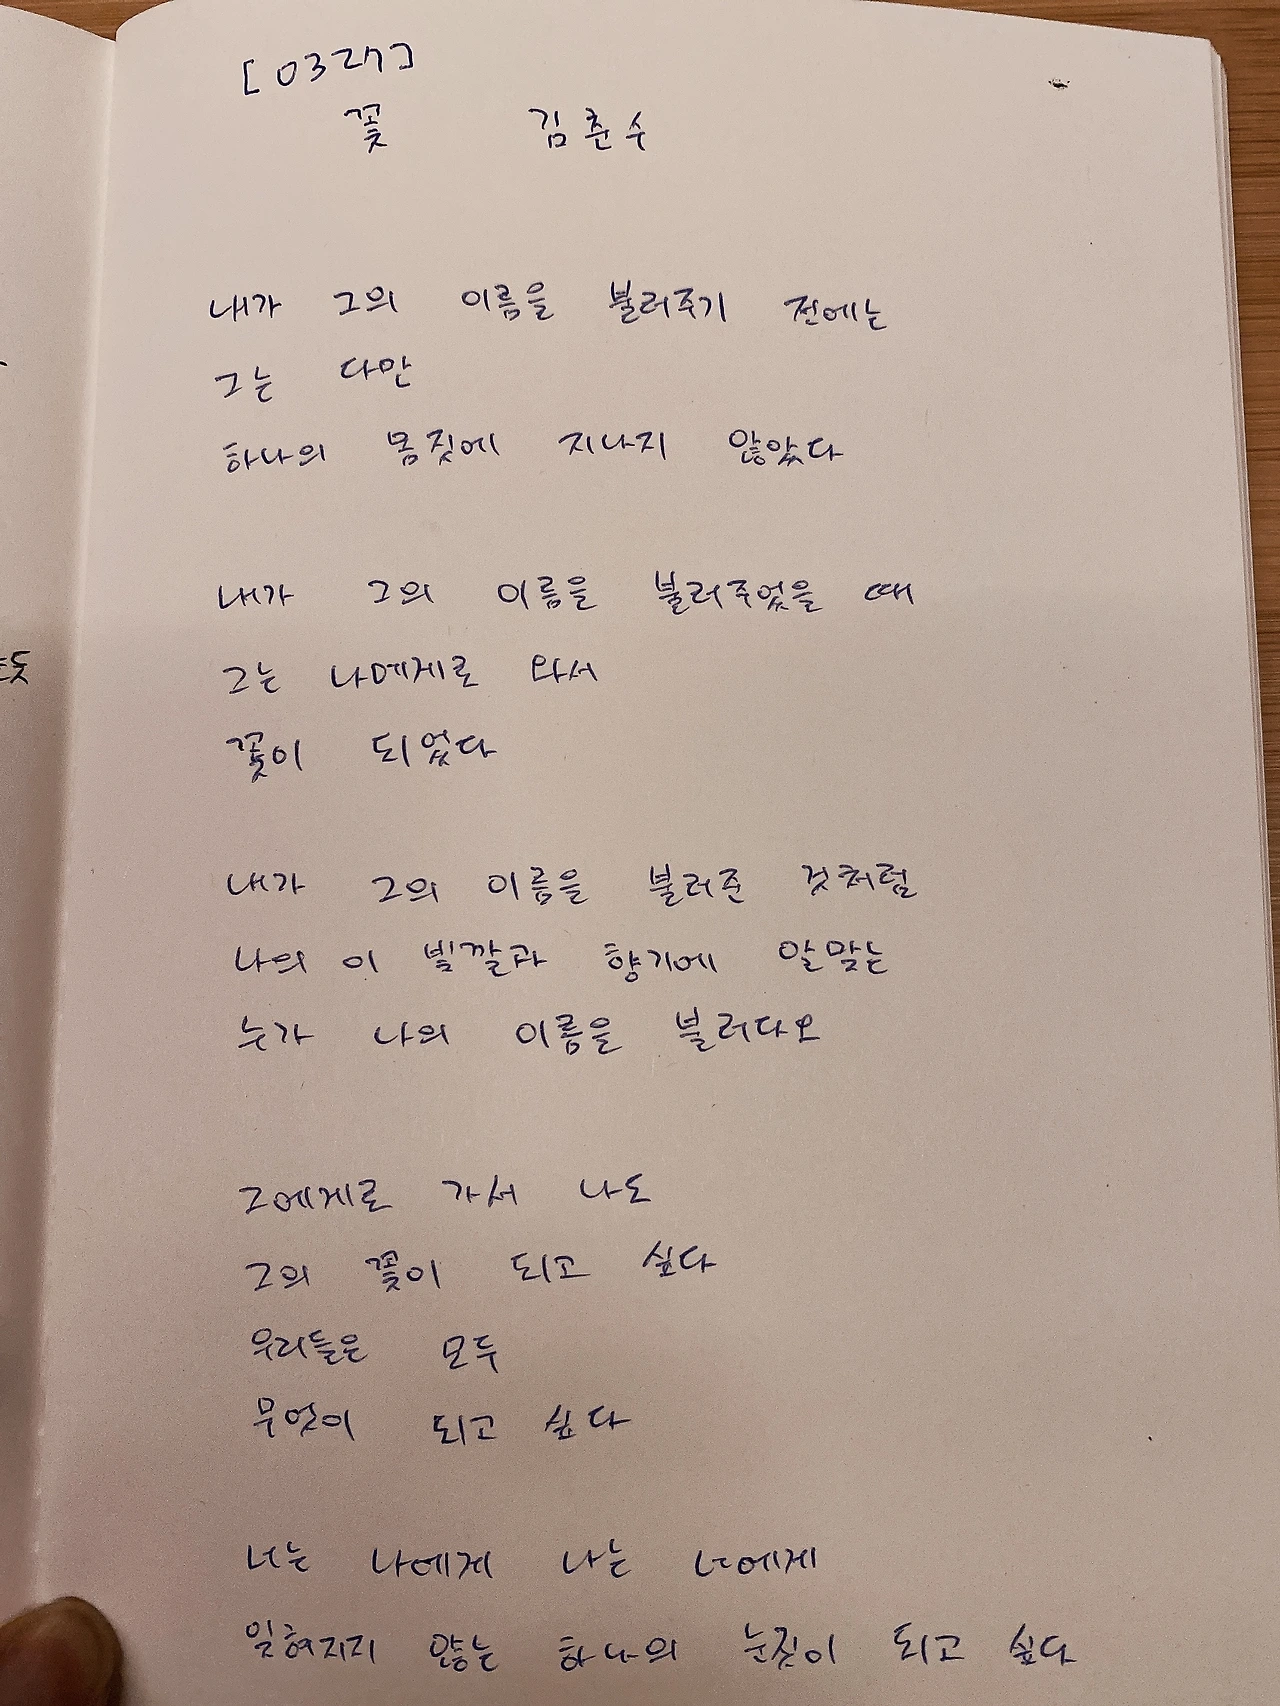 [0327]
꽃 김춘수
내가 그의 이름을 불러주기 전에는
그는 다만
하나의 몸짓에 지나지 않았다
내가 그의 이름을 불러주었을 때
그는 나에게로 와서
꽃이 되었다
내가 그의 이름을 불러준 것처럼
나의 이 빛깔과 향기에 알맞는
누가 나의 이름을 불러다오
그에게로 가서 나도
그의 꽃이 되고 싶다
우리들은 모두
무엇이 되고 싶다
너는 나에게 나는 너에게
잊혀지지 않는 하나의 눈짓이 되고 싶다